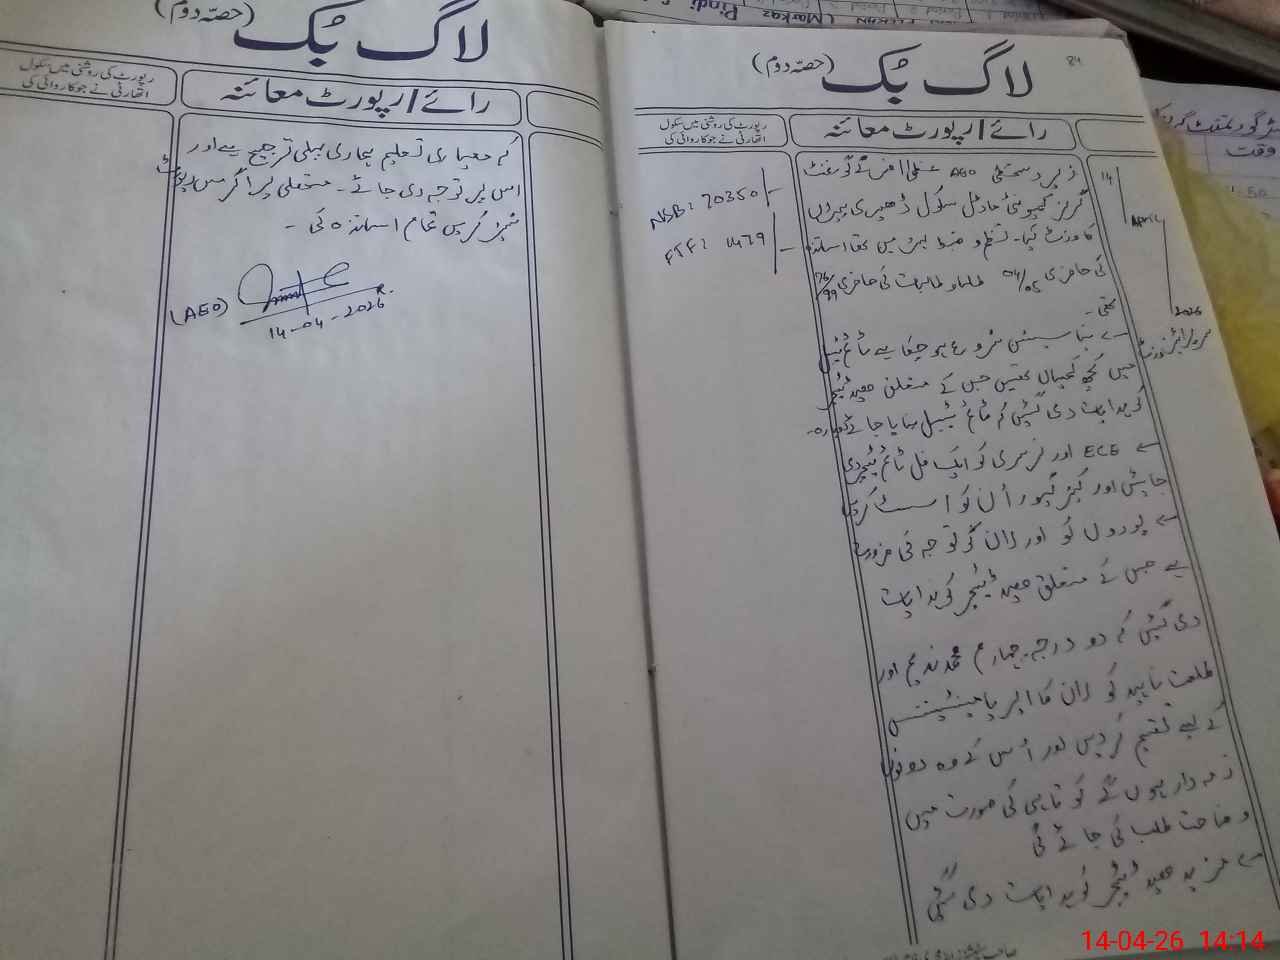 لاگ بُک (حصّہ دوم)
84
رائے/رپورٹ معائنہ
رپورٹ کی روشنی میں سکول
اتھارٹی نے جو کاروائی کی
14 APRIL 2026
سرپرائز وزٹ
NSB: 70350/-
FTF: 1479/-
زیر دستخطی AEO نے گورنمنٹ
گرلز کمیونٹی ماڈل سکول ڈھیری
کا وزٹ کیا۔ نظم و ضبط میں اساتذہ
کی حاضری 04/05 طلبا و طالبات کی حاضری 76/99
تھی۔
← نیا سیشن شروع ہو چکا ہے ٹائم ٹیبل
میں کچھ کمیاں تھیں جس کے متعلق ہیڈ ٹیچر
کو ہدایات دی گئیں کہ ٹائم ٹیبل بنایا جائے دوبارہ۔
← ECE اور نرسری کو ایک فل ٹائم ٹیچر دی
جائیں اور کیئر گیور اُن کو اسسٹ کریں
← پودوں کو اور لان کو توجہ کی ضرورت
ہے جس کے متعلق ہیڈ ٹیچر کو ہدایات
دی گئیں کہ دو درجہ چہارم محمد ندیم اور
طلعت ناہید کو لان کا ایریا مینٹیننس
کے لیے تقسیم کر دیں اور اُس کے وہ دونوں
ذمہ دار ہوں گے کوتاہی کی صورت میں
وضاحت طلب کی جائے گی
← مزید ہیڈ ٹیچر کو ہدایات دی گئی
لاگ بُک (حصّہ دوم)
رائے/رپورٹ معائنہ
رپورٹ کی روشنی میں سکول
اتھارٹی نے جو کاروائی کی
کہ معیاری تعلیم ہماری پہلی ترجیح ہے اور
اس پر توجہ دی جائے۔ منتھلی پراگرس رپورٹ
شیئر کریں تمام اساتذہ کی۔
(AEO)
14-04-2026
وقت
(Markaz Pindi
14-04-26 14:14